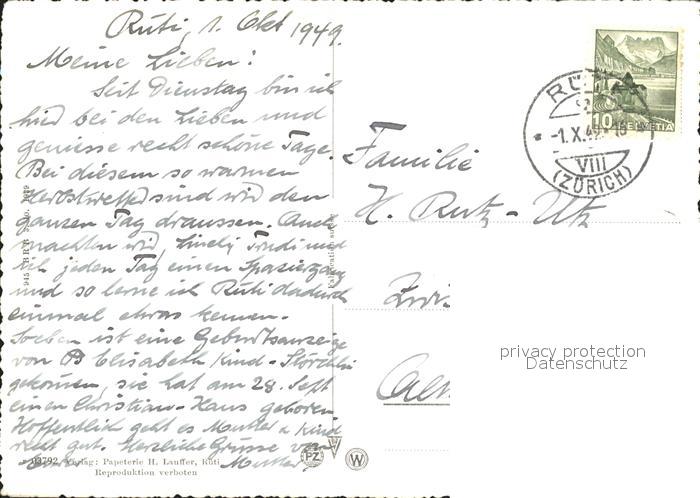 Rüti, 1. Okt 1949.
Meine Lieben!
Seit Dienstag bin ich
hier bei den Lieben und
geniesse recht schöne Tage.
Bei diesem so warmen
Herbstwetter sind wir den
ganzen Tag draussen. Auch
machten wir, Lineli, Trudi und
ich jeden Tag einen Spaziergang
und so lerne ich Rüti dadurch
einmal etwas kennen.
Soeben ist eine Geburtsanzeige
von Elisabeth Kind-Störchlin
gekommen, sie hat am 28. Sept
einen Christian-Haus geboren
Hoffentlich geht es Mutter u Kind
recht gut. Herzliche Grüsse von
Mutter
Familie
H. Rutz-Utz
RÜ
-1.X.49
VIII
(ZÜRICH)
10 HELVETIA
privacy protection
Datenschutz
Verlag: Papeterie H. Lauffer, Rüti
Reproduktion verboten
PZ
W